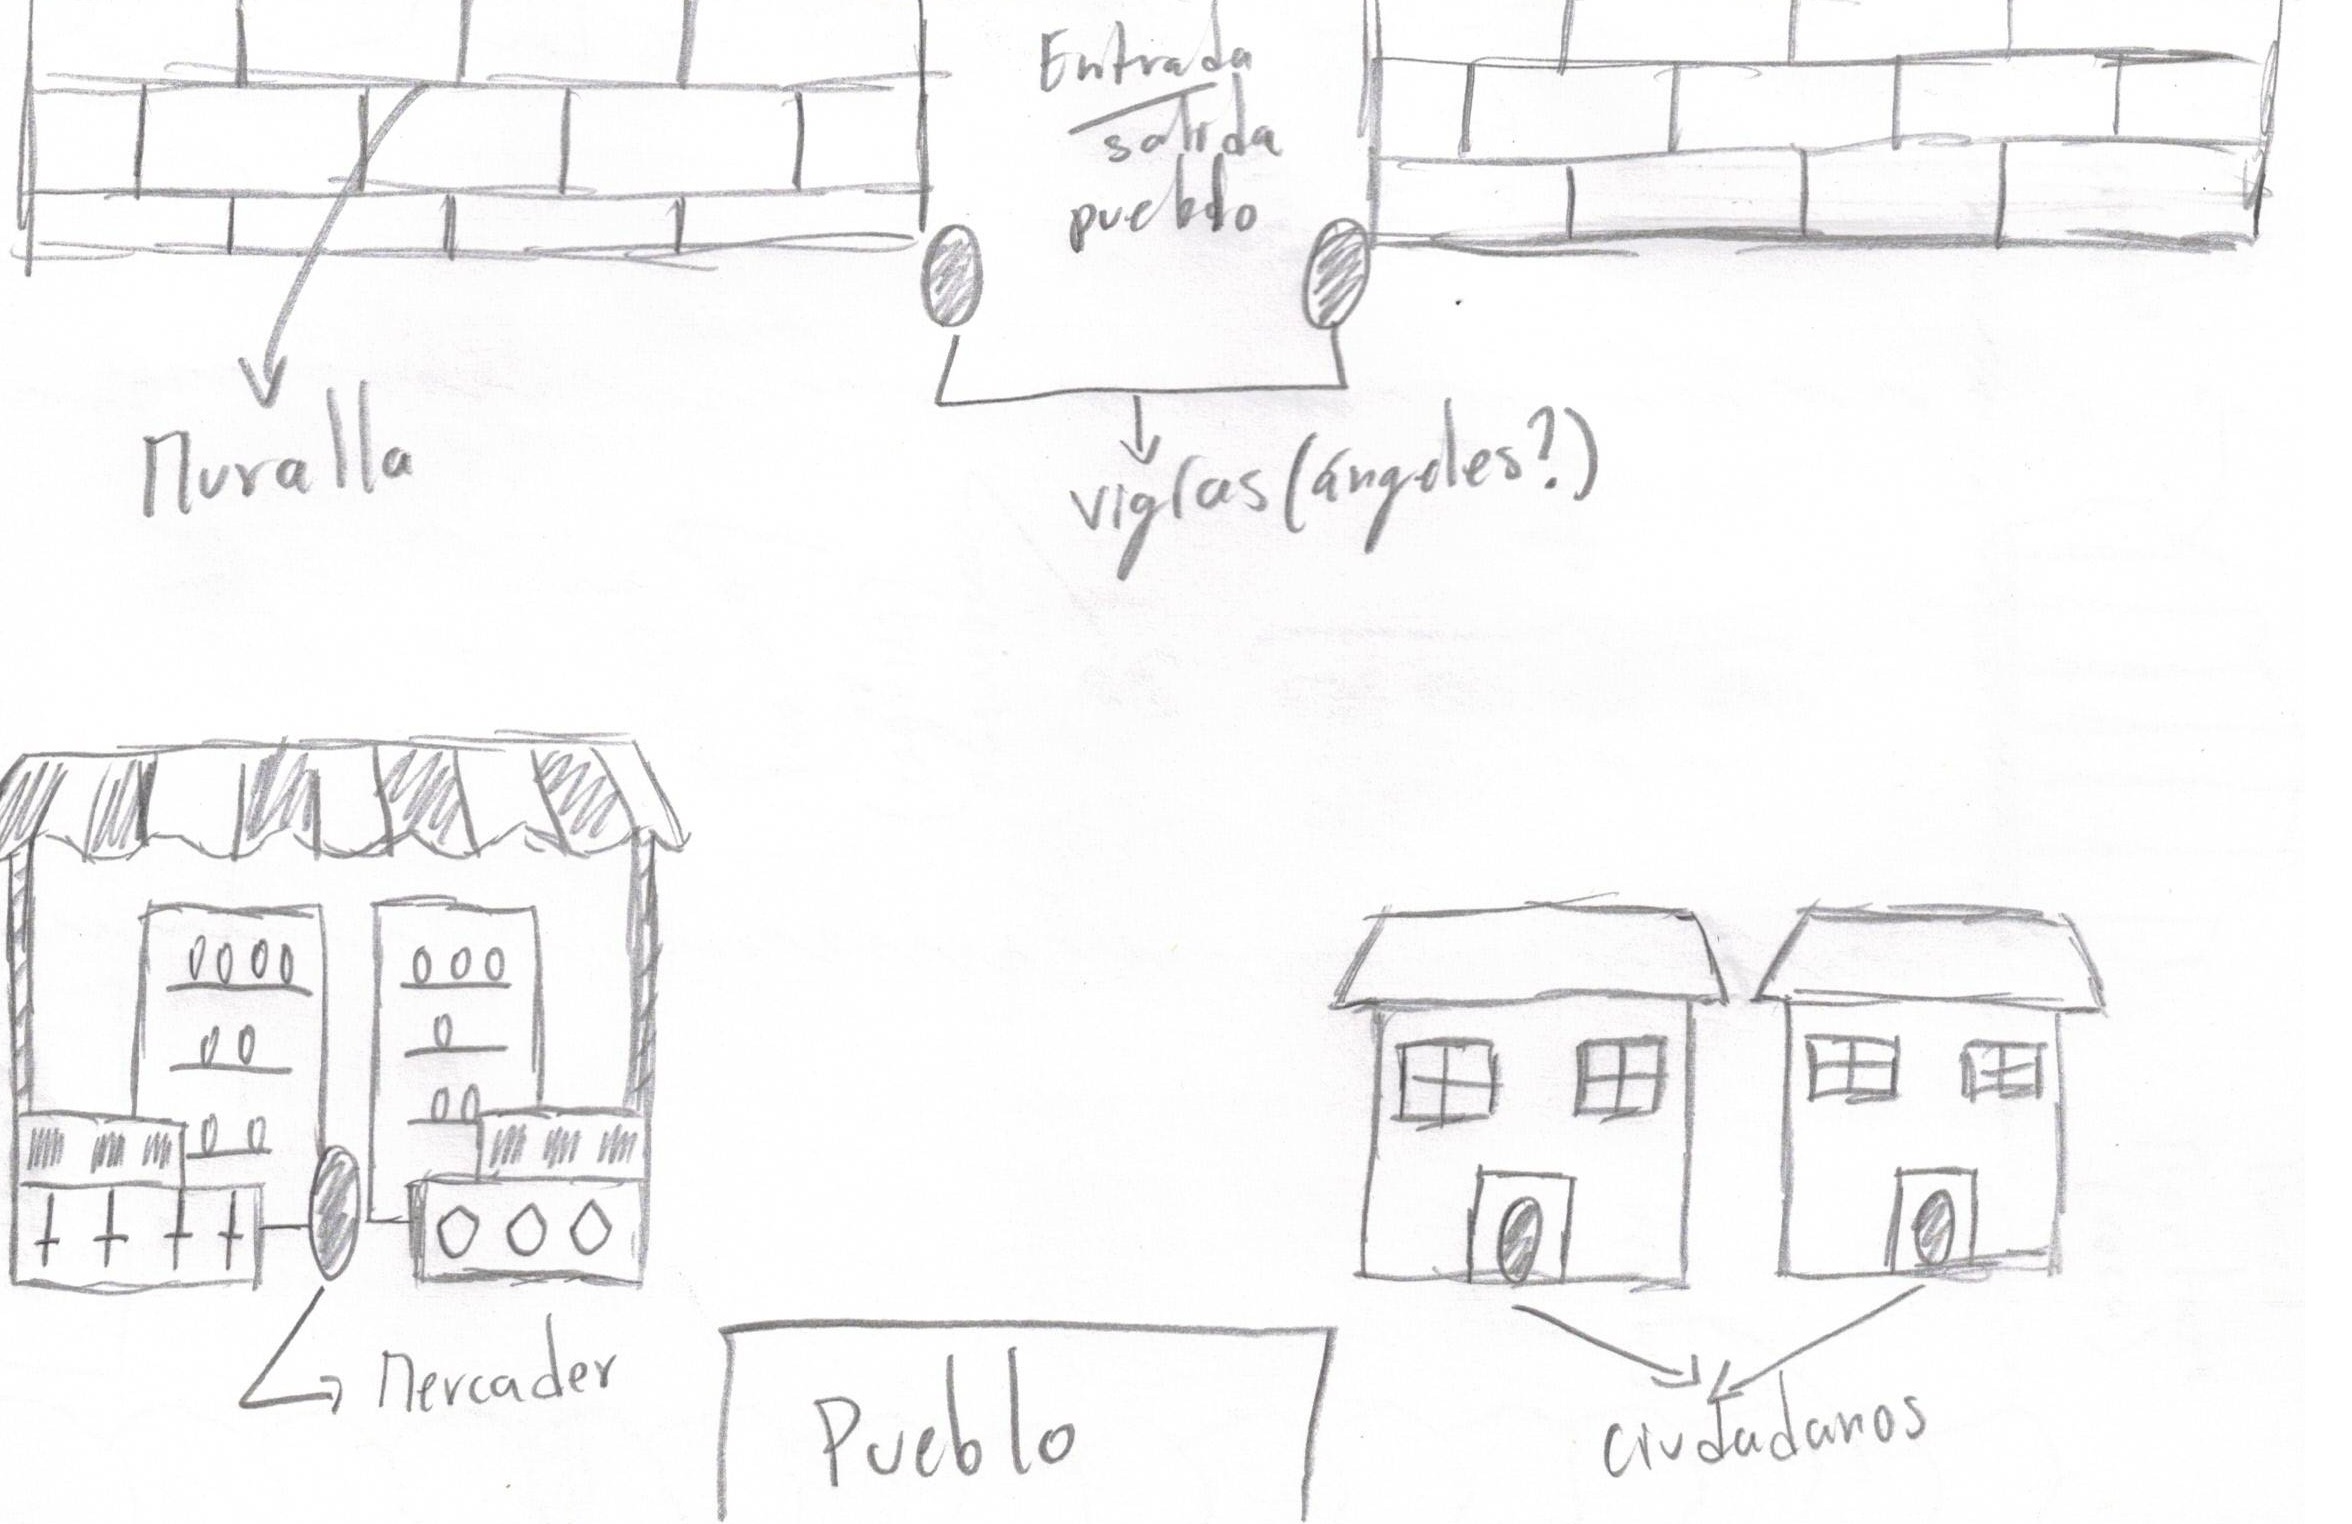 Entrada
salida
pueblo
Muralla
vigías (ángeles?)
Mercader
Pueblo
ciudadanos